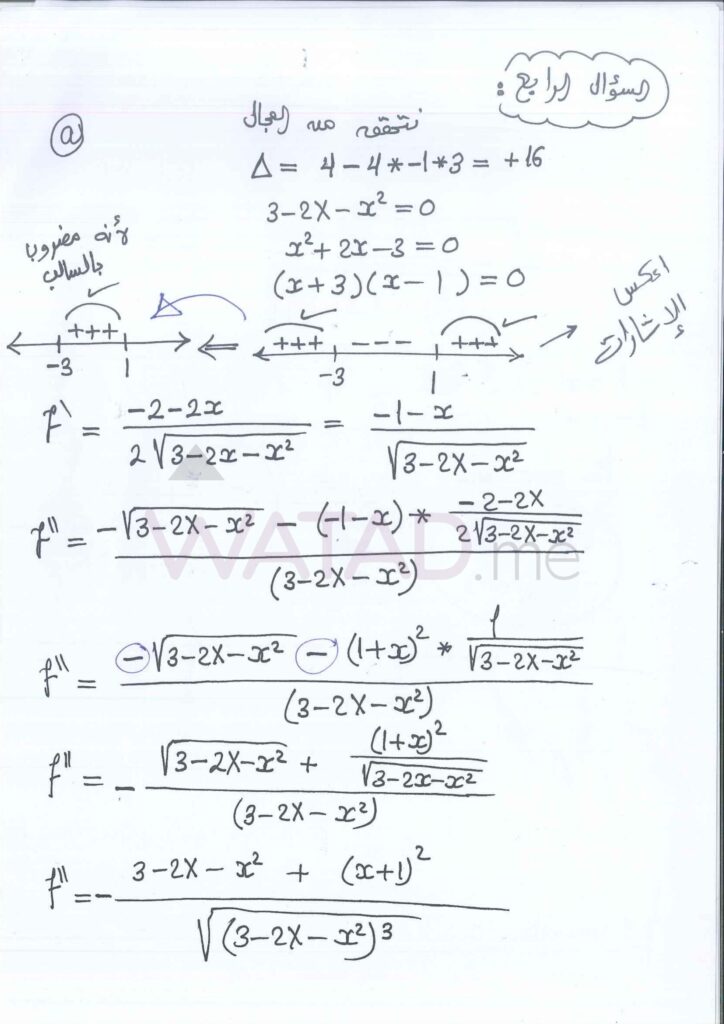 السؤال الرابع :
a
نتحقق من المجال
Δ = 4 - 4 * -1 * 3 = +16
3 - 2x - x² = 0
x² + 2x - 3 = 0
(x + 3)(x - 1) = 0
لأنه مضروب
بالسالب
اعكس
الإشارات
+++
-3 1
+++ --- +++
-3 1
f' = (-2 - 2x) / (2√(3 - 2x - x²)) = (-1 - x) / √(3 - 2x - x²)
f'' = (-√(3 - 2x - x²) - (-1 - x) * (-2 - 2x) / (2√(3 - 2x - x²))) / (3 - 2x - x²)
WATAD.me
f'' = (-√(3 - 2x - x²) - (1 + x)² * 1 / √(3 - 2x - x²)) / (3 - 2x - x²)
f'' = - (√(3 - 2x - x²) + (1 + x)² / √(3 - 2x - x²)) / (3 - 2x - x²)
f'' = - (3 - 2x - x² + (x + 1)²) / √((3 - 2x - x²)³)